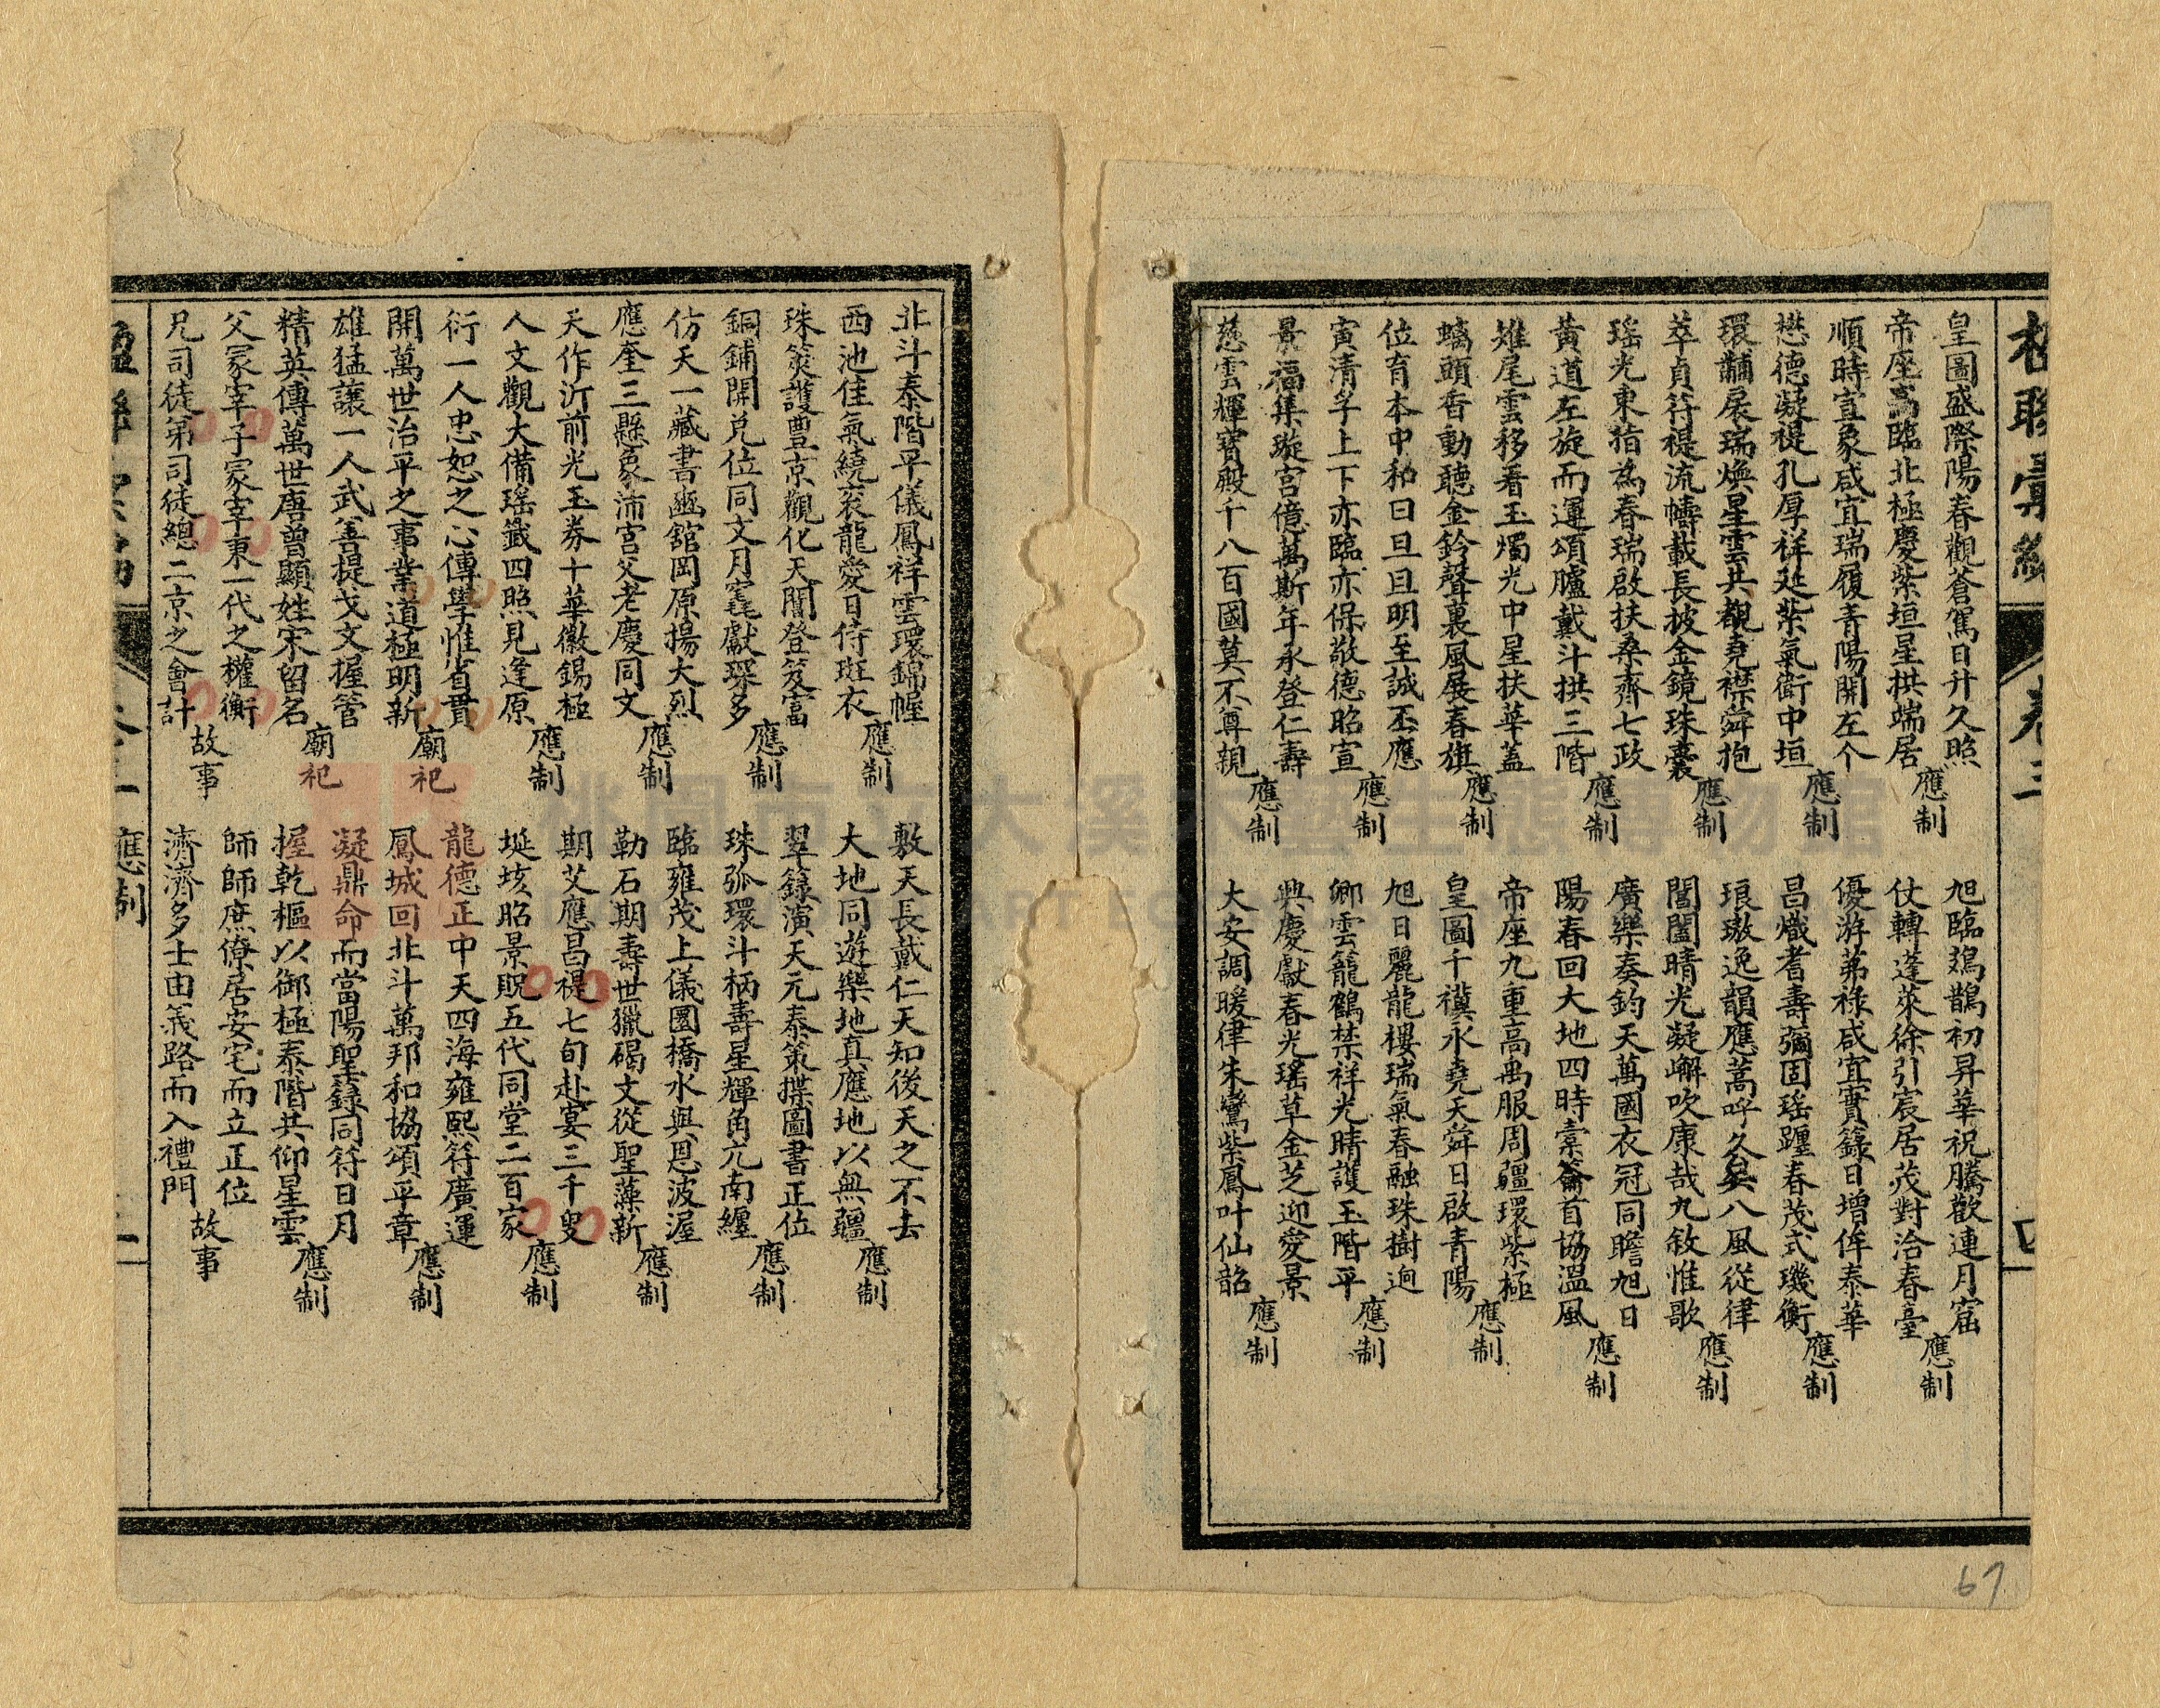 皇圖盛際陽春觀蒼駕日升久照
帝座高臨北極慶紫垣星拱端居
應制
順時宣象咸宜瑞履青陽開左个
懋德凝禔孔厚祥延紫氣衛中垣
應制
環黼展瑞煥星雲共觀堯襟舜抱
萃貞符禔流幬載長披金鏡珠囊
應制
瑤光東指為春瑞啟扶桑齊七政
黃道左旋而運頌臚戴斗拱三階
應制
雉尾雲移看玉燭光中星扶華蓋
螭頭香動聽金鈴聲裏風展春旗
應制
位育本中和曰旦旦明至誠丕應
寅清孚上下亦臨亦保敬德昭宣
應制
景福集璇宮億萬斯年永登仁壽
慈雲輝寶殿千八百國莫不尊親
應制
旭臨鳷鵲初昇華祝騰歡連月窟
仗轉蓬萊徐引宸居茂對洽春臺
應制
優游茀祿咸宜實錄日增侔泰華
昌熾耆壽彌固瑤躔春茂式璣衡
應制
琅璈逸韻應嵩呼久矣八風從律
閶闔晴光凝嶰吹康哉九敘惟歌
應制
廣樂奏鈞天萬國衣冠同瞻旭日
陽春回大地四時橐籥首協溫風
應制
帝座九重高禹服周疆環紫極
皇圖千禩永堯天舜日啟青陽
應制
旭日麗龍樓瑞氣春融珠樹迥
卿雲籠鶴禁祥光晴護玉階平
應制
興慶獻春光瑤草金芝迎愛景
大安調暖律朱鸞紫鳳叶仙韶
應制
北斗泰階平儀鳳祥雲環錦幄
西池佳氣繞袞龍愛日侍斑衣
應制
珠筴護豐京觀化天閶登笈富
銅鋪開兌位同文月寉獻琛多
應制
仿天一藏書幽館岡原揚大烈
應奎三懸象沛宮父老慶同文
應制
天作沂前光玉券十華徽錫極
人文觀大備瑤籤四照見逢原
應制
衍一人忠恕之心傳學惟省貫
開萬世治平之事業道極明新
廟祀
雄猛讓一人武善提戈文握管
精英傳萬世唐曾顯姓宋留名
廟祀
父冢宰子冢宰東一代之權衡
兄司徒弟司徒總二京之會計
故事
敷天長戴仁天知後天之不去
大地同遊樂地真應地以無疆
應制
翠籙演天元泰策揲圖書正位
珠弧環斗柄壽星輝角亢南纏
應制
臨雍茂上儀圜橋水與恩波渥
勒石期壽世獵碣文從聖藻新
應制
期艾應昌禔七旬赴宴三千叟
埏垓昭景貺五代同堂二百家
應制
龍德正中天四海雍熙符廣運
鳳城回北斗萬邦和協頌平章
應制
凝鼎命而當陽聖籙同符日月
握乾樞以御極泰階共仰星雲
應制
師師庶僚居安宅而立正位
濟濟多士由義路而入禮門
故事
卷三
四
應制
67